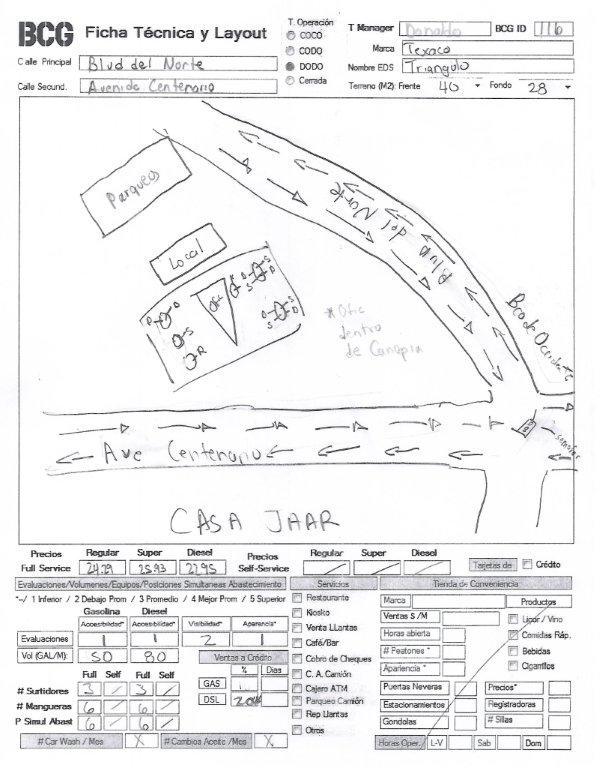 BCG Ficha Técnica y Layout
T. Operación
COCO
CODO
DODO
Cerrada
T Manager Donaldo BCG ID 116
Marca Texaco
Nombre EDS Triangulo
Terreno (M2): Frente 40 Fondo 28
Calle Principal Blvd del Norte
Calle Secund. Avenida Centenario
Parqueos
Local
Blvd del Norte
* Ofic dentro de Canopia
Bco de Occidente
Ave Centenario
CASA JAAR
Precios Regular Super Diesel Precios Regular Super Diesel
Full Service 24.29 25.93 22.95 Self-Service Tarjetas de Crédito
Evaluaciones/Volumenes/Equipos/Posiciones Simultaneas Abastecimiento
*--/ 1 Inferior / 2 Debajo Prom / 3 Promedio / 4 Mejor Prom / 5 Superior
Gasolina Diesel
Accesibilidad* Accesibilidad* Visibilidad* Aparencia*
Evaluaciones 1 1 2 1
Vol (GAL/M): 50 80
Ventas a Crédito
% Dias
GAS
DSL
Full Self Full Self
# Surtidores 3 3
# Mangueras 6 6
P Simul Abast 6 6
# Car Wash / Mes X # Cambios Aceite /Mes X
Servicios
Restaurante
Kiosko
Venta LLantas
Café/Bar
Cobro de Cheques
C. A. Camión
Cajero ATM
Parqueo Camión
Rep Llantas
Otros
Tienda de Conveniencia
Marca
Ventas $ /M
Horas abierta
# Peatones *
Apariencia *
Productos
Licor / Vino
Comidas Ráp.
Bebidas
Cigarrilos
Puertas Neveras Precios*
Estacionamientos Registradoras
Gondolas # Sillas
Horas Oper. L-V Sab Dom